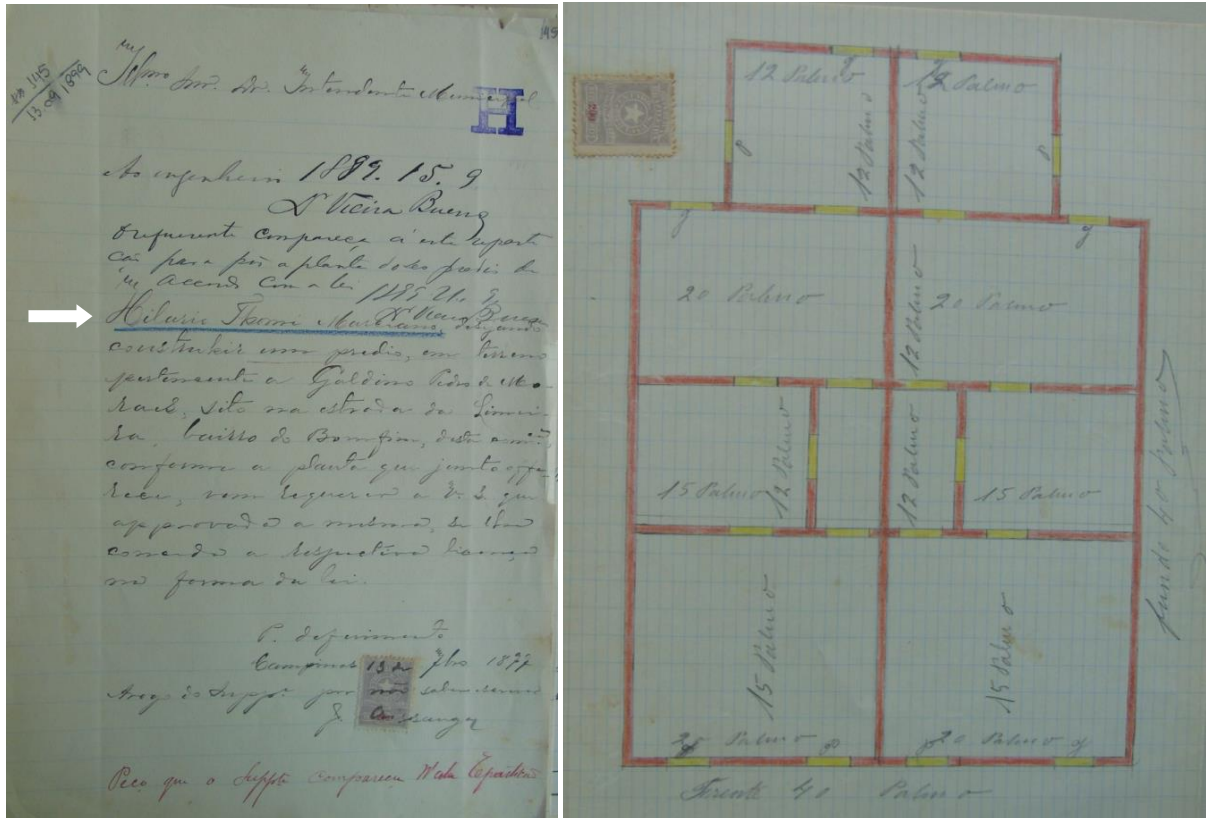 145
nº 145
13 09 1899
Illmo Snr. Dr. Intendente Municipal
H
Ao engenheiro 1899. 15. 9
Dr Vieira Bueno
O requerente compareça á esta
para pôr a planta do seo predio
accordo com a lei
Dr Vieira Bueno
Hilario Marciano, desejando
construhir um predio, em terreno
pertencente a Galdino Pedro de Mo-
raes, sito na estrada da Limei-
ra, bairro do Bomfim,
conforme a planta que junto offe-
rece, vem requerer a V. S. que
approvada a mesma, se lhe
conceda a respectiva licença
na forma da lei.
P. deferimento
Campinas 13 7bro 1899
Arogo do Supp.e por não saber
Peço que o Suppte compareça
12 Palmo
12 Palmo
12 Palmo
12 Palmo
20 Palmo
12 Palmo
20 Palmo
15 Palmo
12 Palmo
12 Palmo
15 Palmo
fundo 40 Palmo
15 Palmo
15 Palmo
20 Palmo
20 Palmo
Frente 40 Palmo